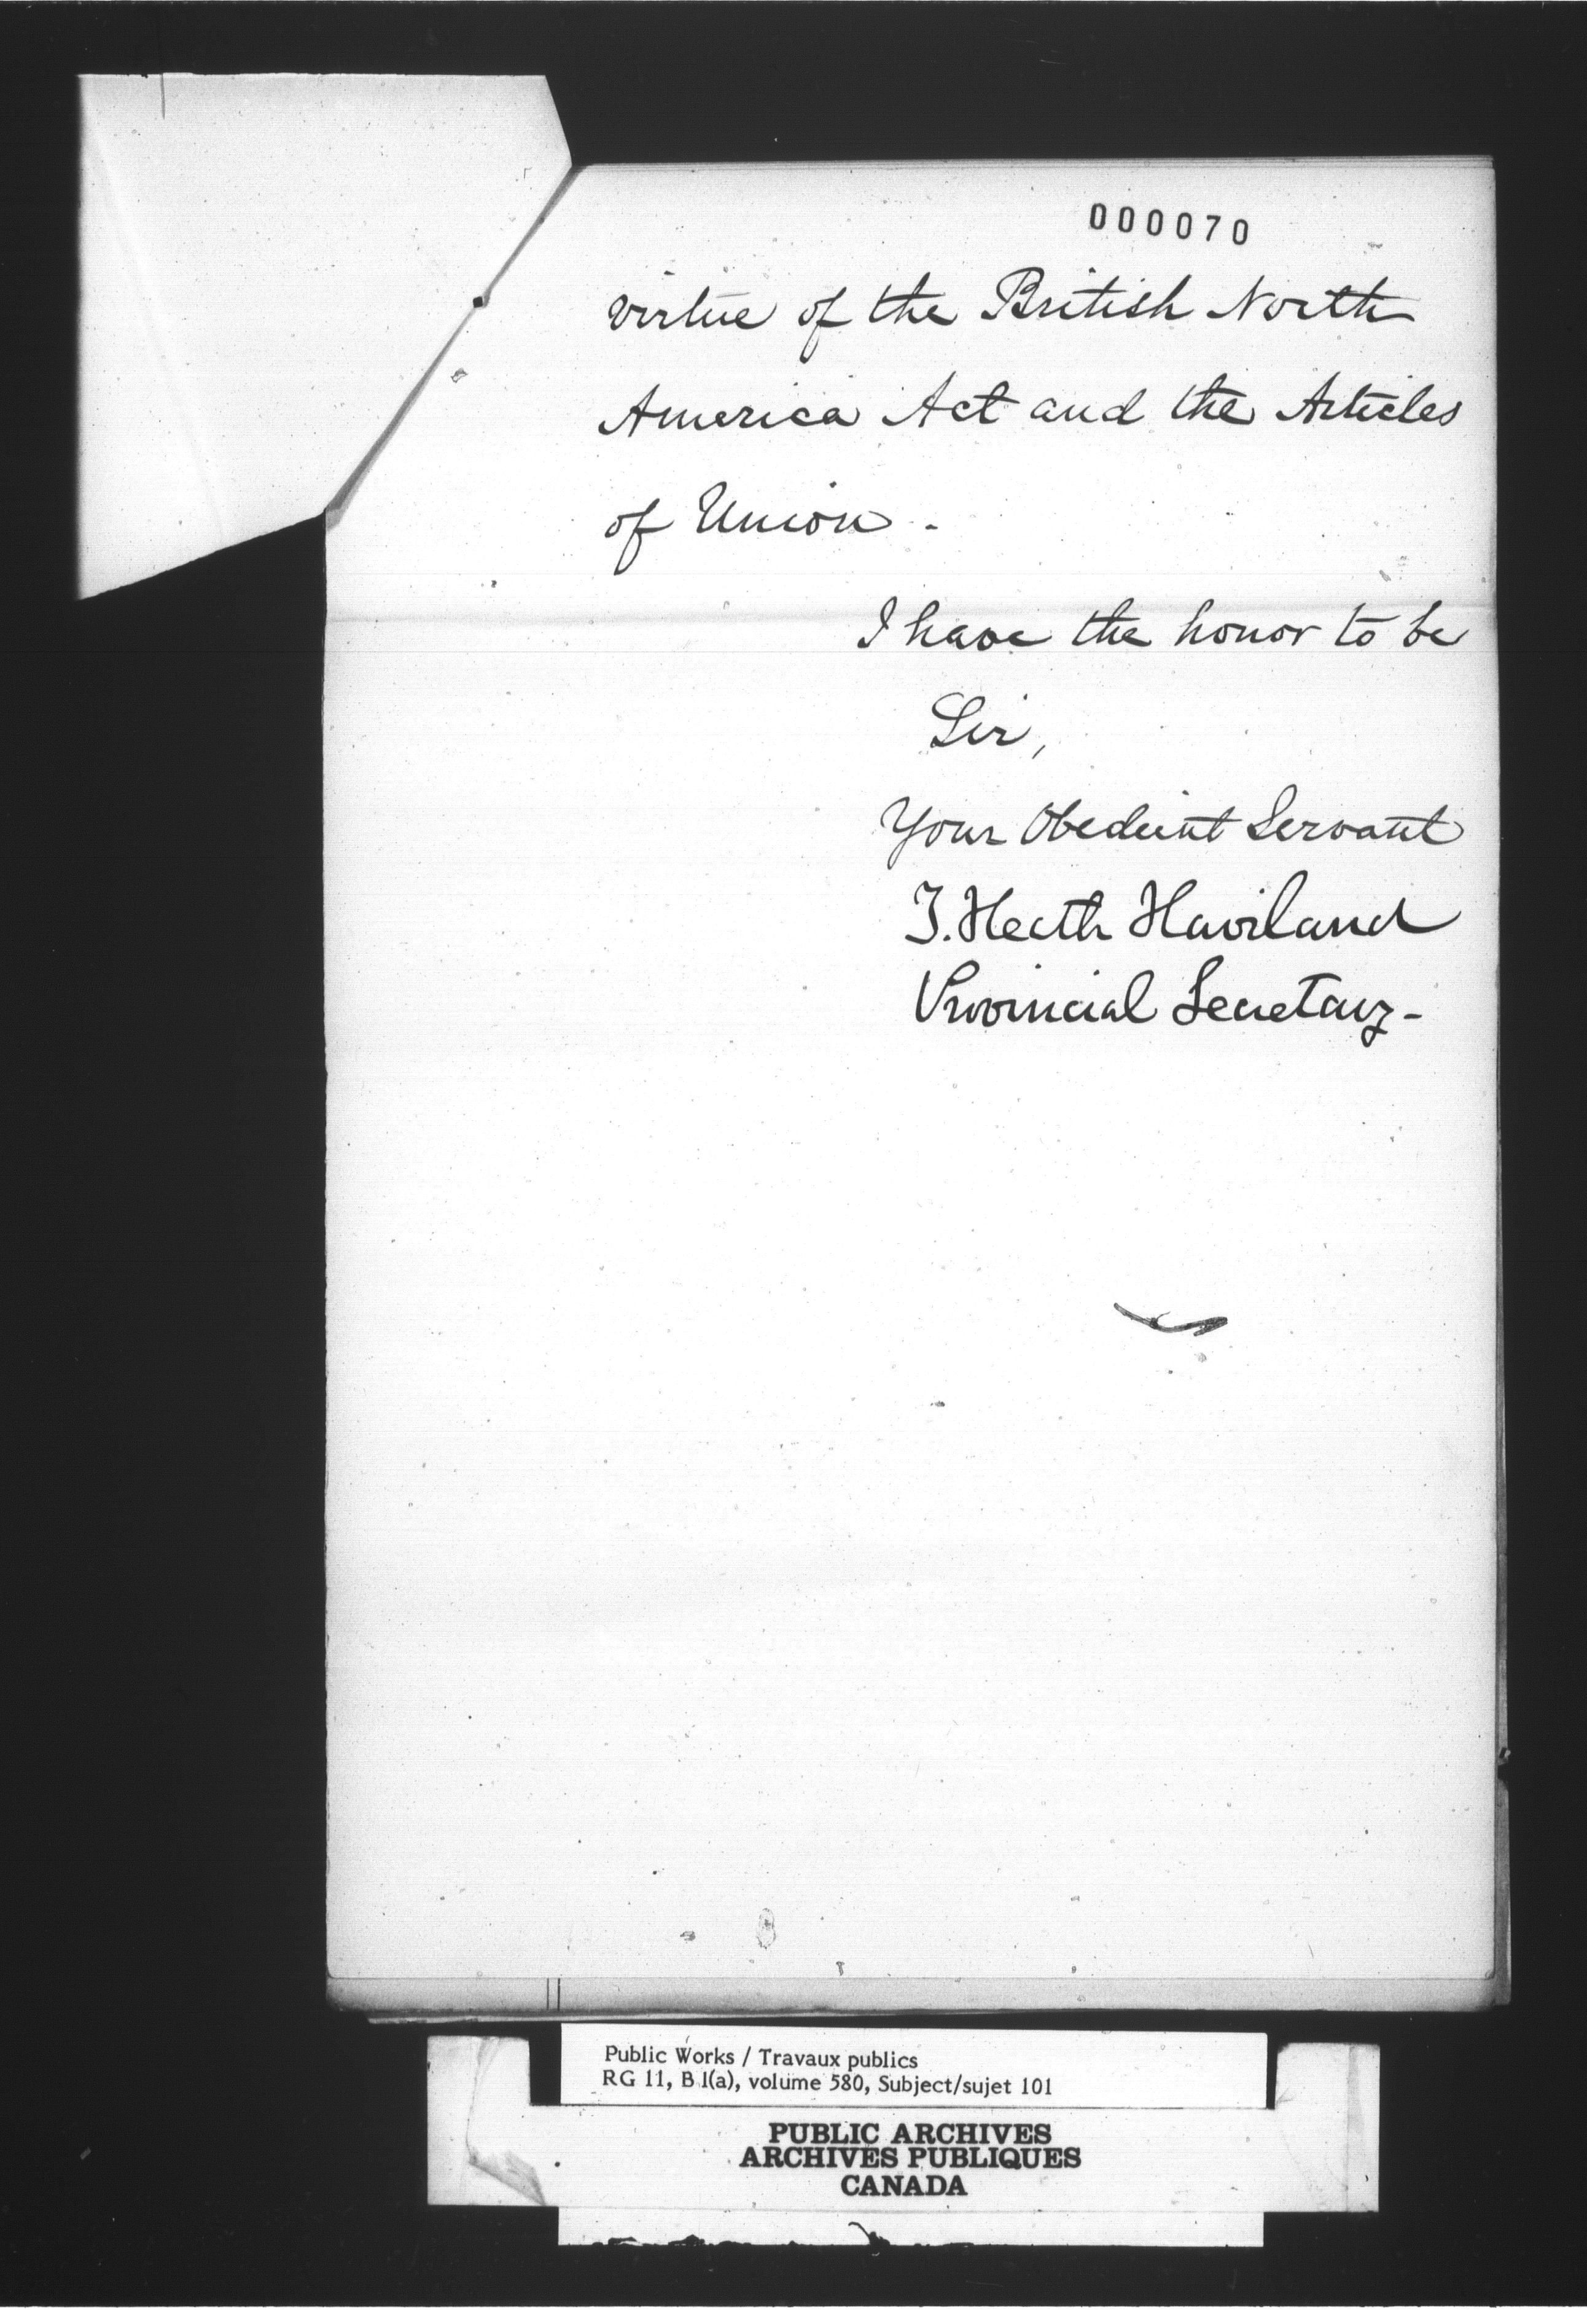 000070
virtue of the British North
America Act and the Articles
of Union.
I have the honor to be
Sir,
Your Obedient Servant
T. Heath Haviland
Provincial Secretary-
Public Works / Travaux publics
RG 11, B 1(a), volume 580, Subject/sujet 101
PUBLIC ARCHIVES
ARCHIVES PUBLIQUES
CANADA